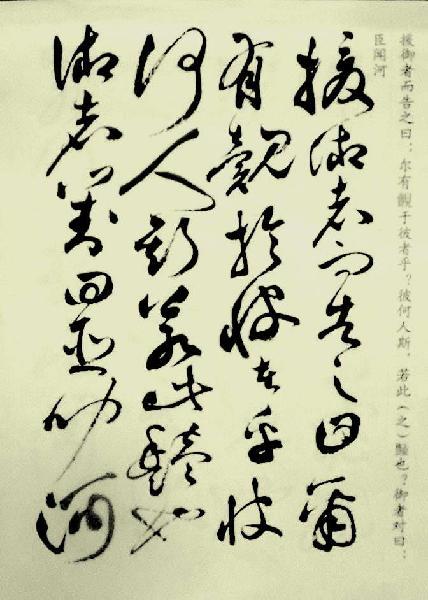 援御者而告之曰：尔有覿于彼者乎？彼何人斯，若此（之）豔也？御者对曰：
臣闻河
援御者而告之曰爾
有覿於彼者乎彼
何人斯若此豔也
御者對曰臣聞河